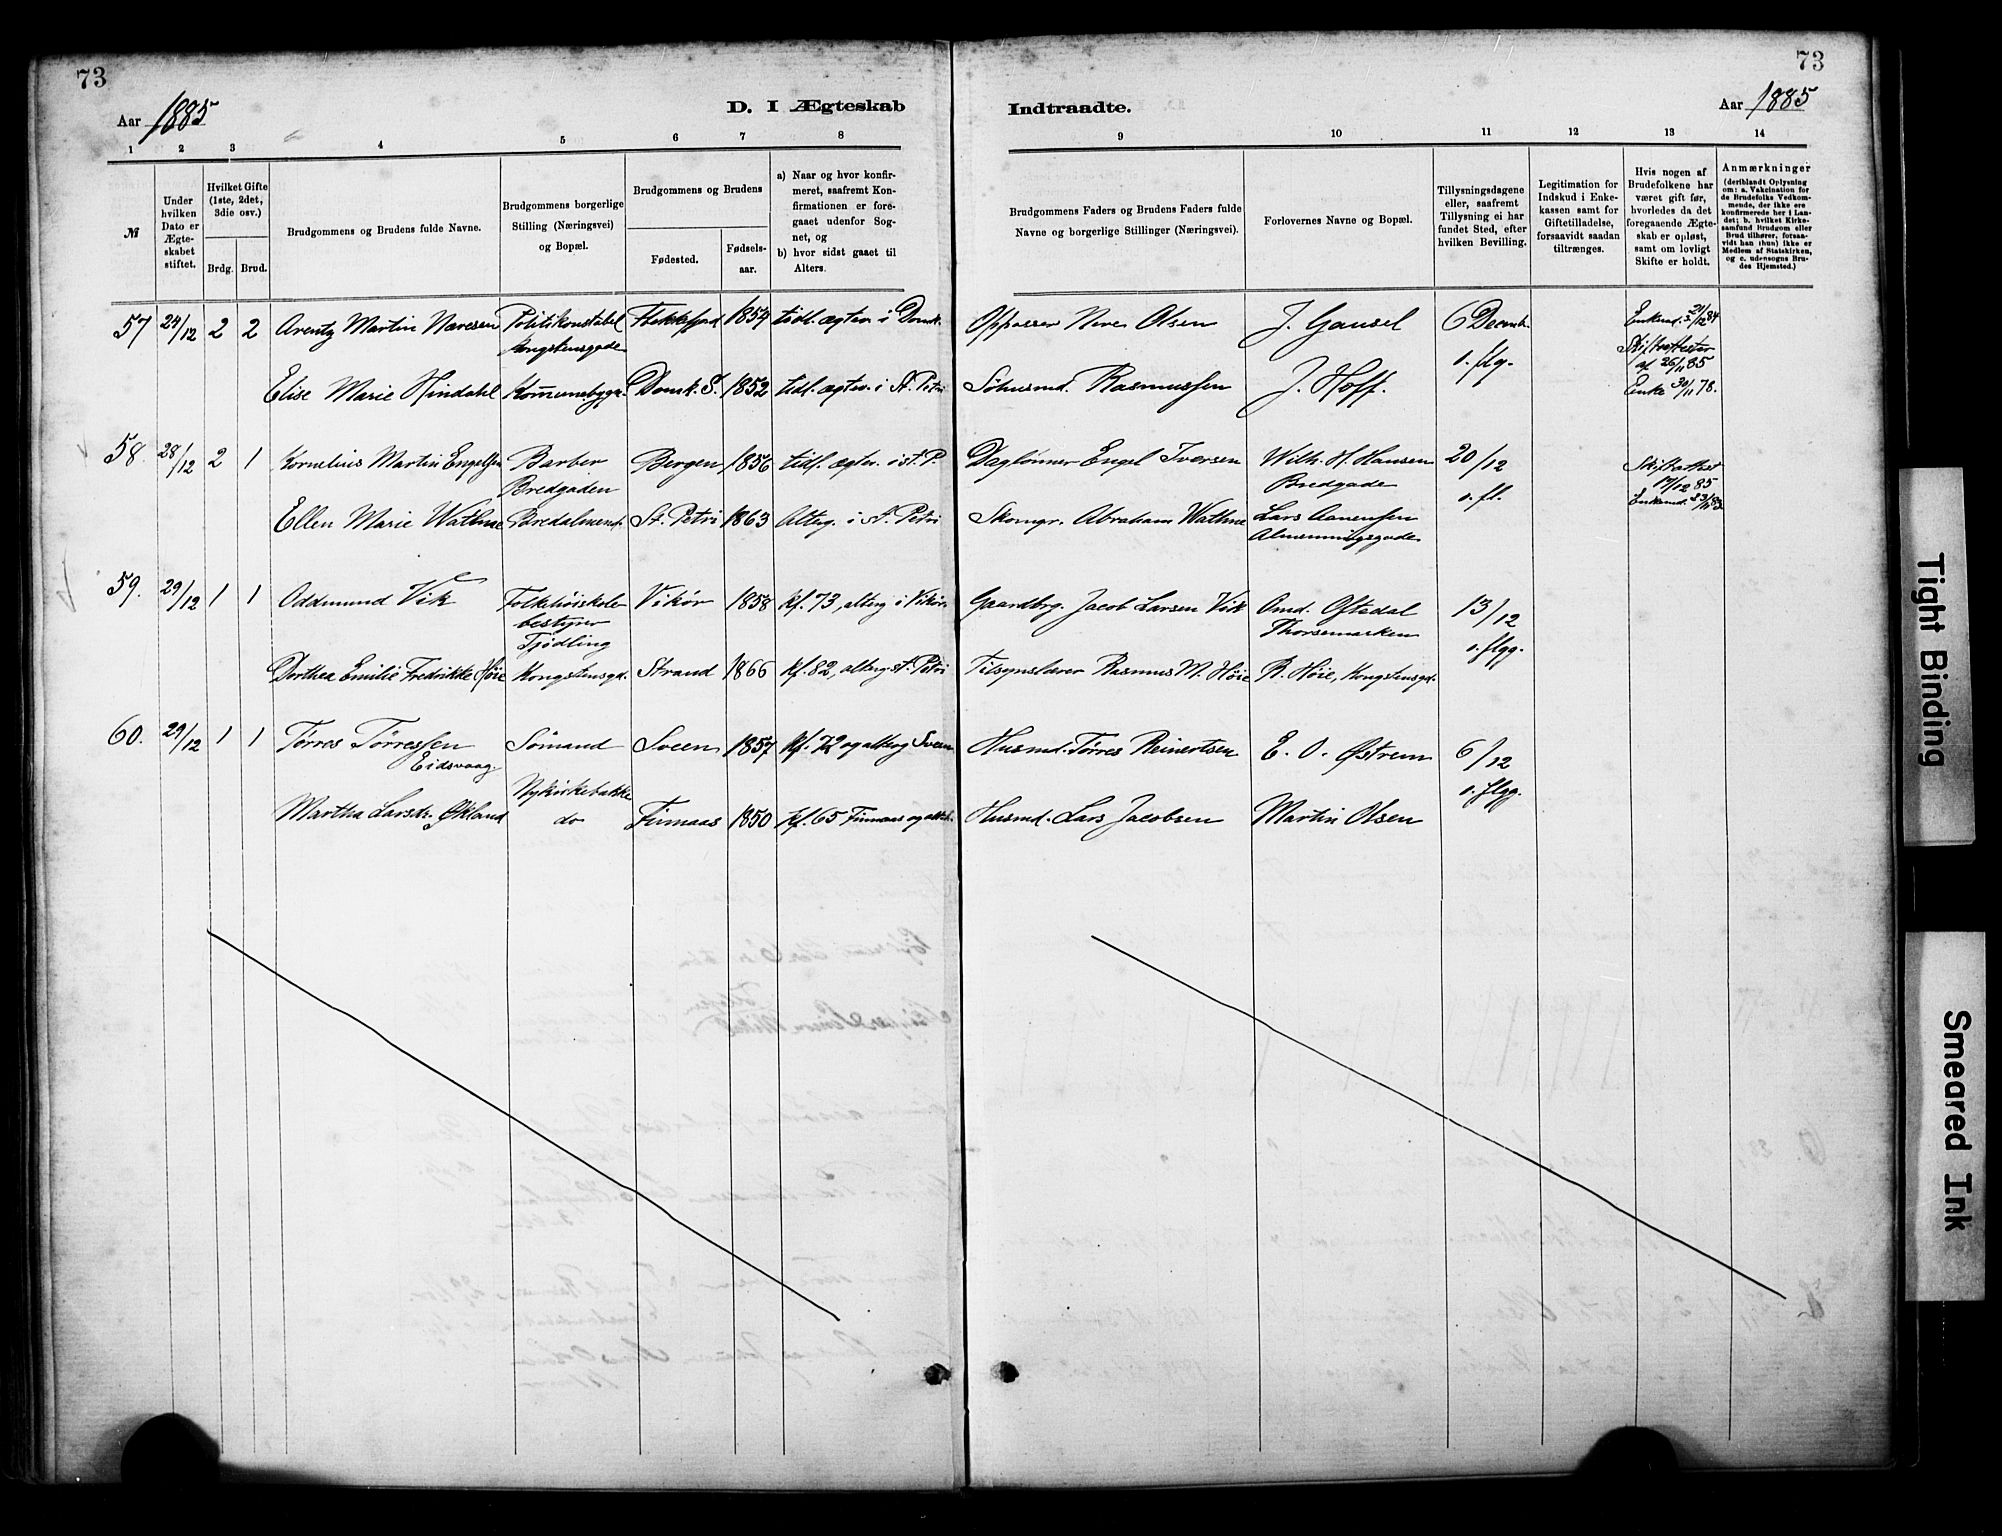 73
73
Aar 1885
D. I Ægteskab
Indtraadte.
Aar 1885
1 2 3 4 5 6 7 8
9 10 11 12 13 14
№
Under hvilken Dato er Ægteskabet stiftet.
Hvilket Gifte (1ste, 2det, 3die osv.)
Brdg. Brud.
Brudgommens og Brudens fulde Navne.
Brudgommens borgerlige Stilling (Næringsvei) og Bopæl.
Brudgommens og Brudens
Fødested.
Fødselsaar.
a) Naar og hvor konfirmeret, saafremt Konfirmationen er foregaaet udenfor Sognet, og
b) hvor sidst gaaet til Alters.
Brudgommens Faders og Brudens Faders fulde Navne og borgerlige Stillinger (Næringsvei).
Forlovernes Navne og Bopæl.
Tillysningsdagene eller, saafremt Tillysning ei har fundet Sted, efter hvilken Bevilling.
Legitimation for Indskud i Enkekassen samt for Giftetilladelse, forsaavidt saadan tiltrænges.
Hvis nogen af Brudefolkene har været gift før, hvorledes da det foregaaende Ægteskab er opløst, samt om lovligt Skifte er holdt.
Anmærkninger (deriblandt Oplysning om: a. Vakcination for de Brudefolks Vedkommende, der ikke ere konfirmerede her i Landet; b. hvilket Kirkesamfund Brudgom eller Brud tilhører, forsaavidt han (hun) ikke er Medlem af Statskirken, og c. udensogns Brudes Hjemsted.)
57 24/12 2 2 Arentz Martin Næresen Politikonstabel Flekkefjord 1854 tidl. ægtev. i Domk. Oppasser Nere Olsen J. Gausel 6 Decemb. Enkemd. 21/12 84
Kongstensgade o. flg. Skifteattester af 26/11 85
Elise Marie Hindahl Kommunebygn. Domk. S. 1852 tidl. ægtev. i St. Petri Sømd. Rasmussen J. Hoff. Enke 30/11 78.
58. 28/12 2 1 Kornelius Martin Engelsen Barber Bergen 1856 tidl. ægtev. i St. P. Daglønner Engel Iversen Wilh. H. Hansen 20/12 Skifteattest
Bredgaden Bredgade o. fl. 17/12 85
Ellen Marie Wathne Bredalmend. St. Petri 1863 Alterg. i St. Petri Skomgr. Abraham Wathne Lars Aanensen Enkemd.
Almenningsgade
59. 29/12 1 1 Oddmund Vik Folkehøiskole- Vikør 1858 kf. 73, alterg i Vikør Gaardbrg. Jacob Larsen Vik Omd. Oftedal 13/12
bestyrer Thorsemarken
Tjødling o. flgg.
Dorthea Emilie Fredrikke Høie Kongstensgd. Strand 1866 kf. 82, alterg. St. Petri Tilsynslærer Rasmus M. Høie R. Høie, Kongstensgd.
60. 29/12 1 1 Tørres Tørressen Sømand Sveen 1857 kf. 72 og alterg Sveen Husmd. Tørres Reinertsen E. O. Østrem 6/12
Eidsvaag.
Nykirkebakke o. flgg.
Martha Larsdr. Økland do Finnaas 1850 kf. 65 Finnaas og Husmd. Lars Jacobsen Martin Olsen
Tight Binding
Smeared Ink